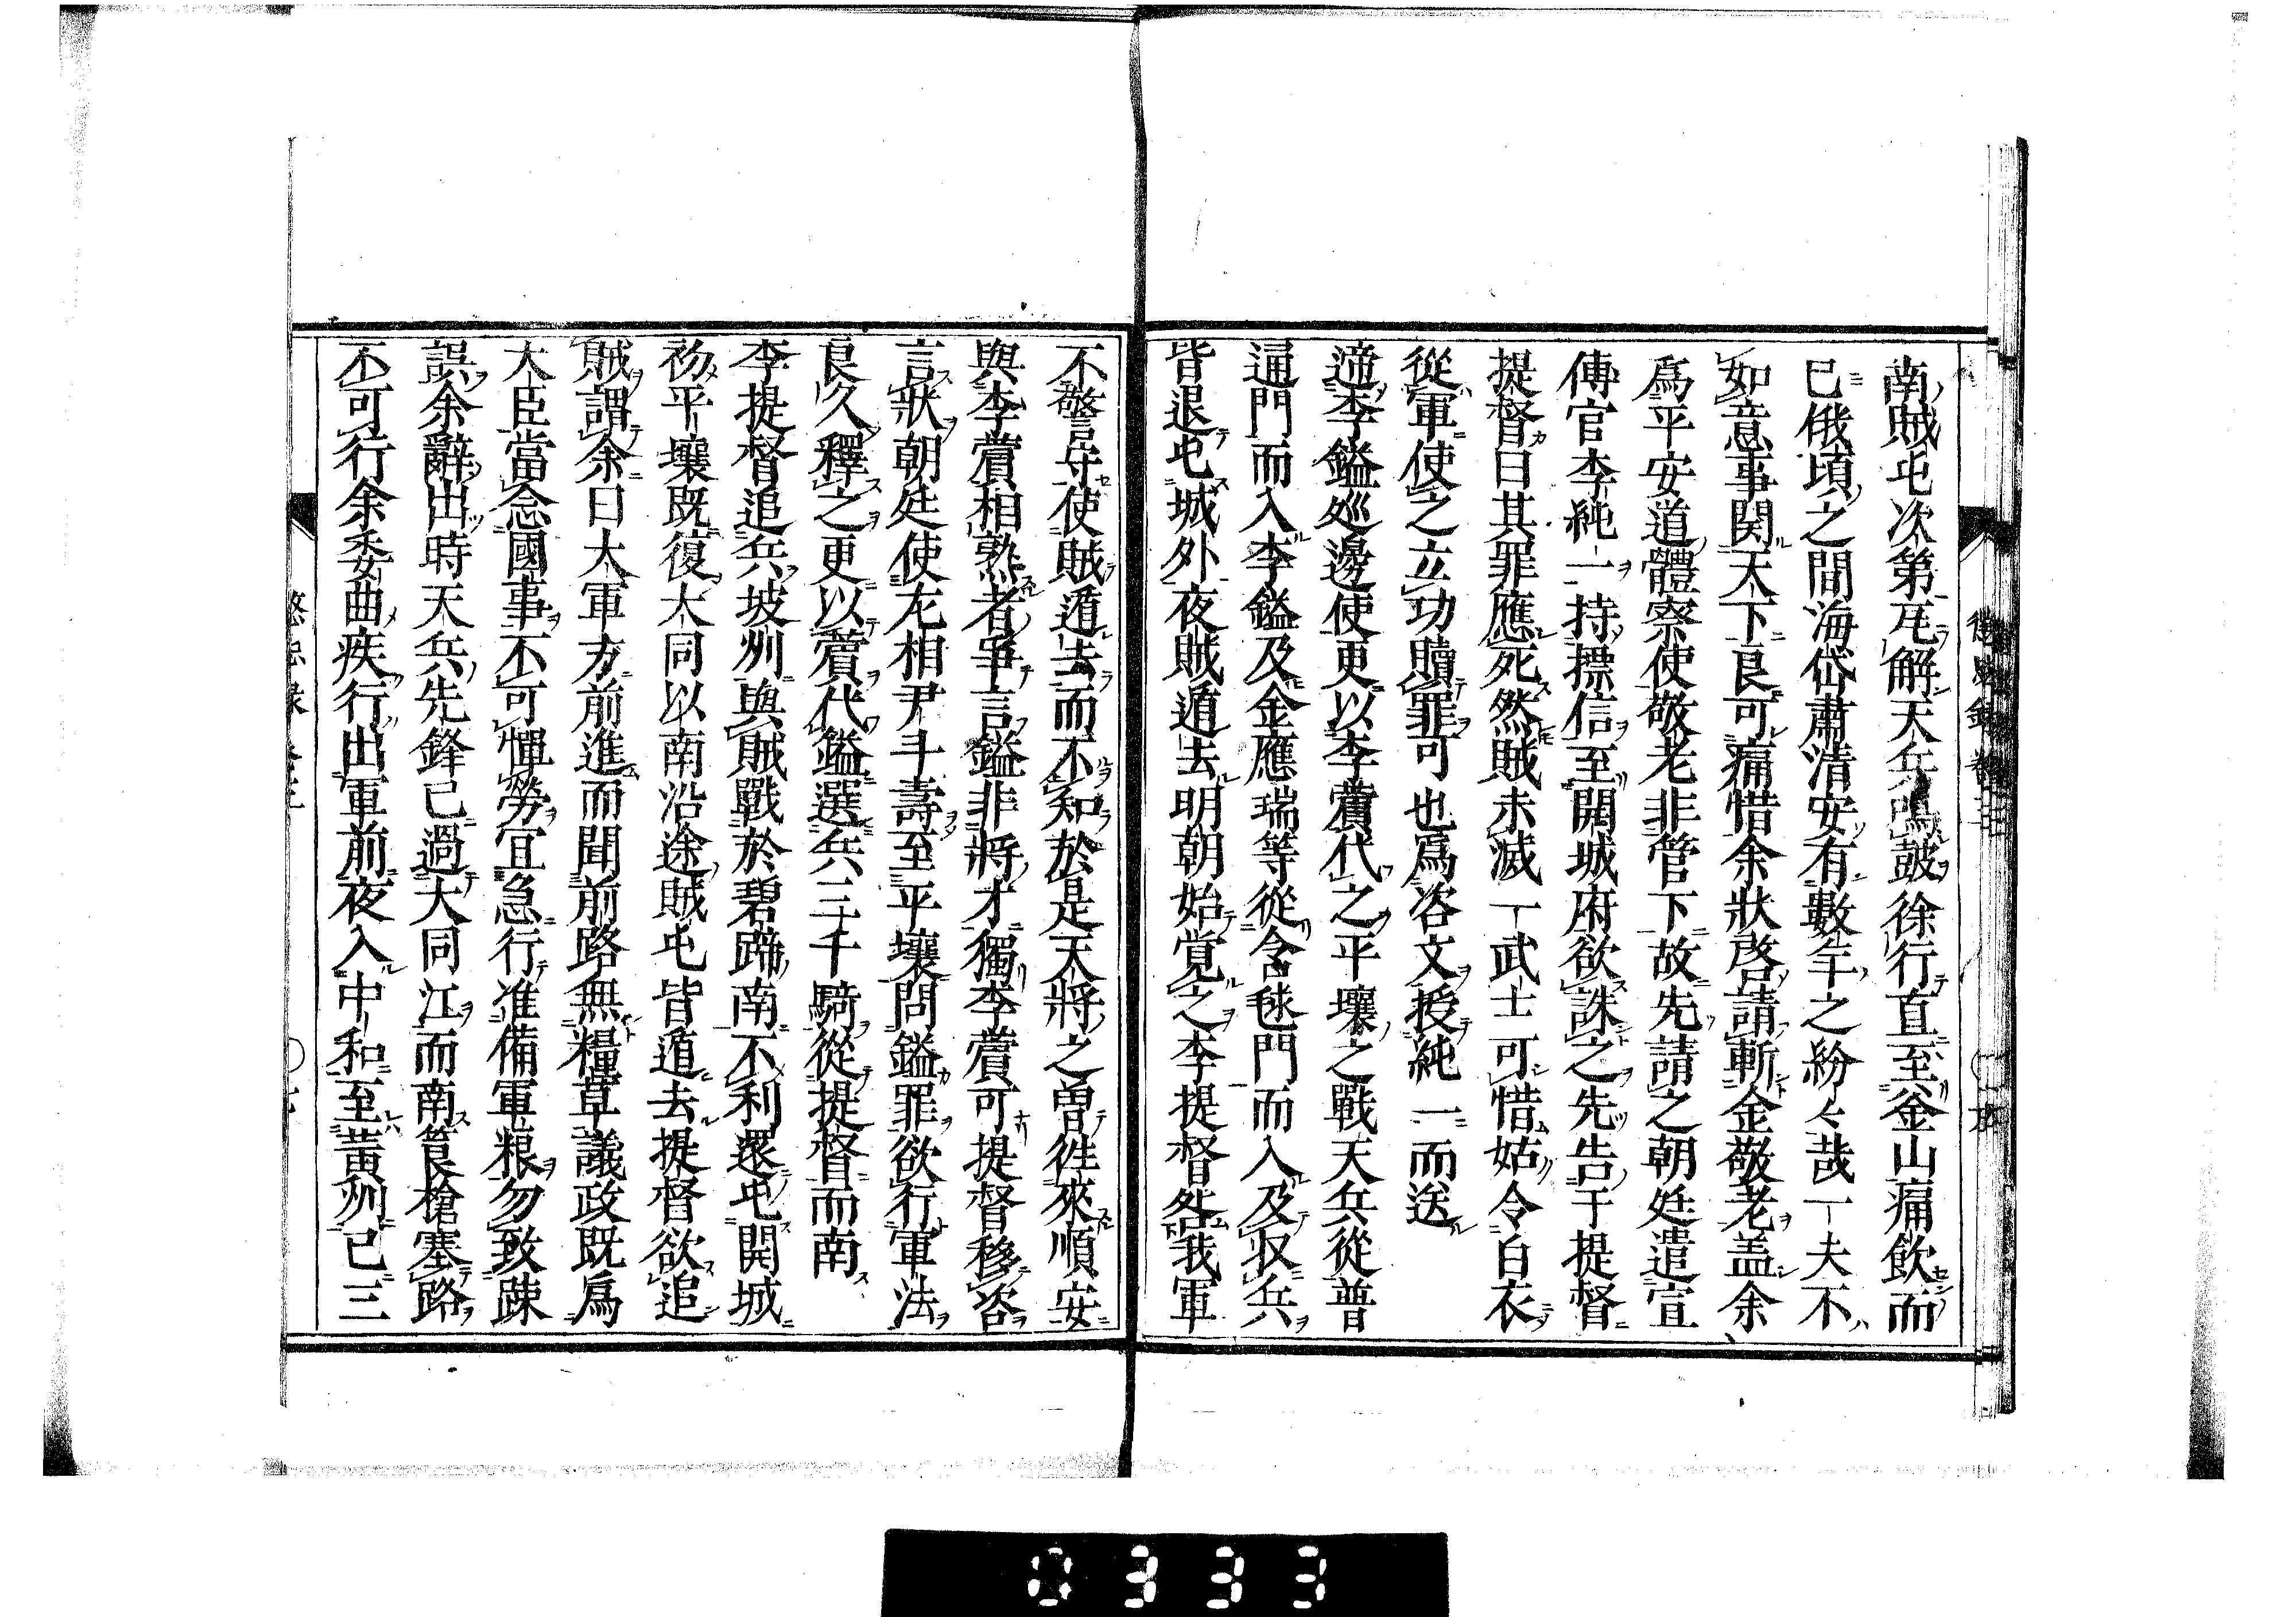 南賊屯次第瓦解天兵鳴皷徐行直至釜山痛飲而
已俄頃之間海岱肅清安有數年之紛〻哉一夫不
如意事関天下良可痛惜余狀啓請斬金敬老盖余
爲平安道體察使敬老非管下故先請之朝廷遣宣
傳官李純一持摽信至開城府欲誅之先告于提督
提督曰其罪應死然賊未滅一武士可惜姑令白衣
從軍使之立功贖罪可也爲咨文授純一而送
遞李鎰巡邊使更以李薲代之平壤之戰天兵從普
通門而入李鎰及金應瑞等從含毬門而入及収兵
皆退屯城外夜賊遁去明朝始覚之李提督咎我軍
不警守使賊遁去而不知於是天將之曽徃來順安
與李薲相熟者爭言鎰非將才獨李薲可提督移咨
言狀朝廷使左相尹斗壽至平壤問鎰罪欲行軍法
良久釋之更以薲代鎰選兵三千騎從提督而南
李提督追兵坡州與賊戰於碧蹄南不利還屯開城
初平壤既復大同以南沿途賊屯皆遁去提督欲追
賊謂余曰大軍方前進而聞前路無糧草議政既爲
大臣當念國事不可憚勞冝急行准備軍粮勿致踈
誤余辭出時天兵先鋒已過大同江而南筤槍塞路
不可行余委曲疾行出軍前夜入中和至黃州已三
懲毖錄 卷三
0333